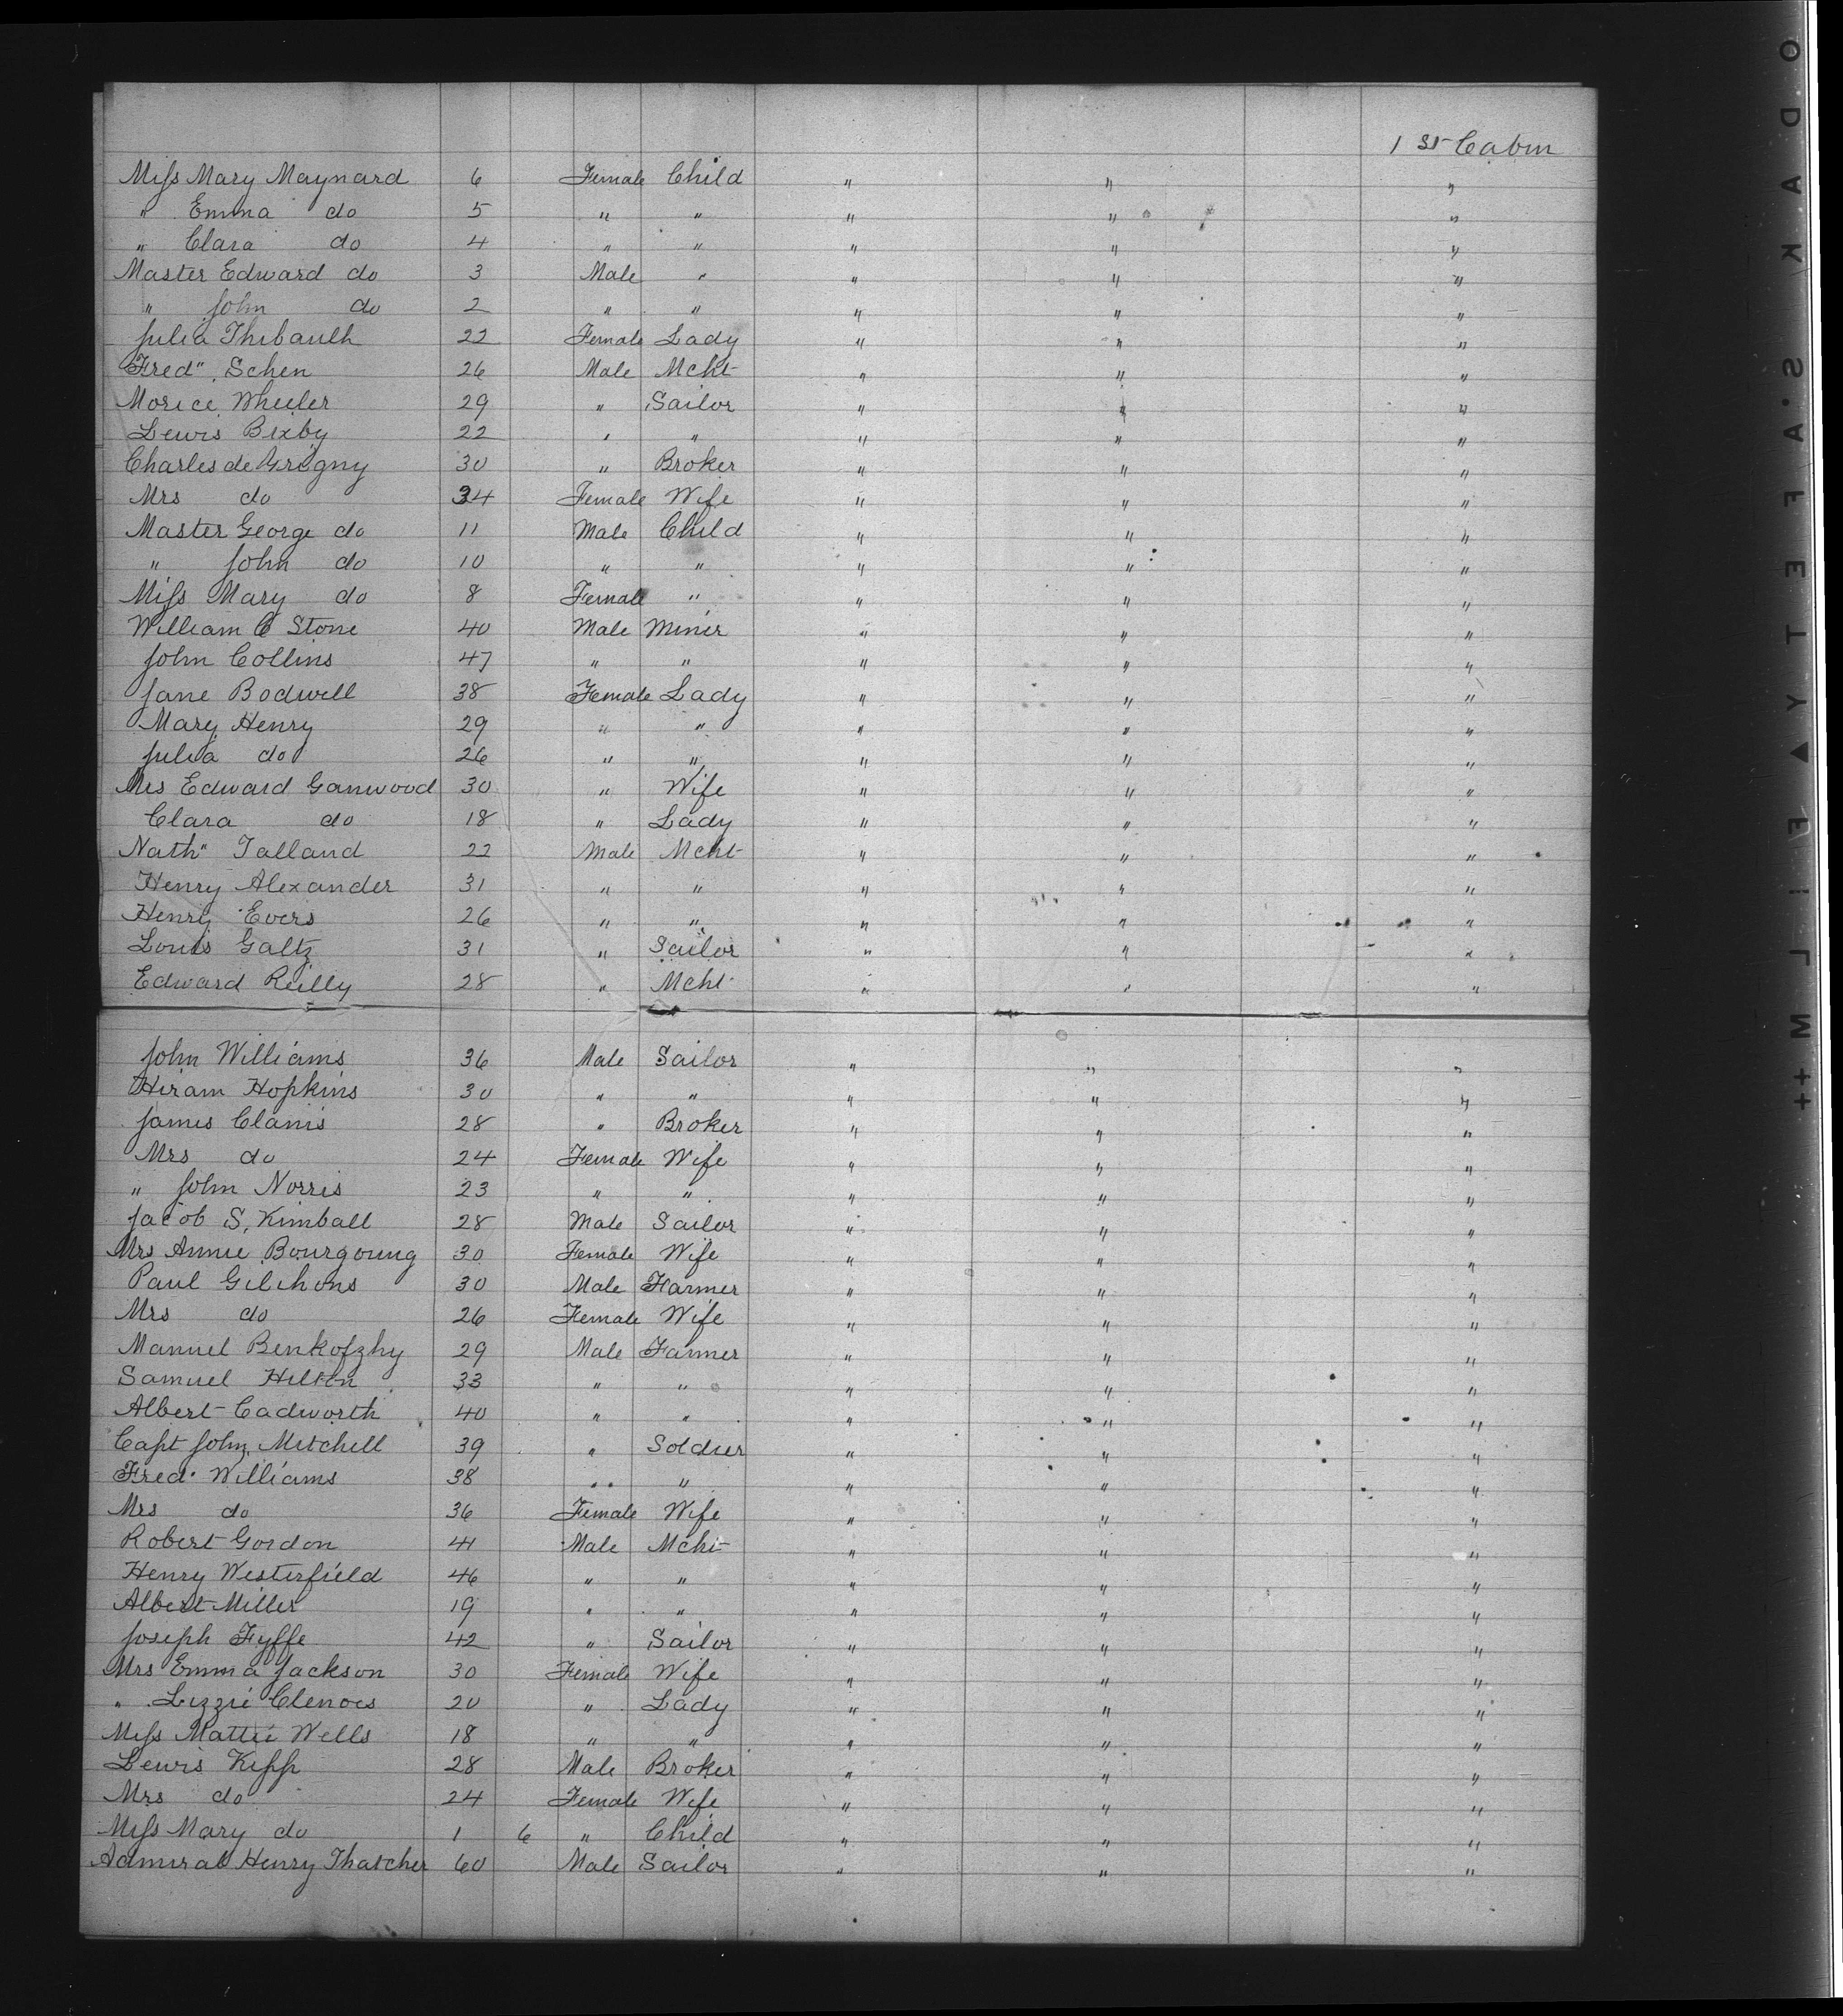 1 st Cabin
Miss Mary Maynard 6 Female Child " " "
" Emma do 5 " " " " "
" Clara do 4 " " " " "
Master Edward do 3 Male " " " "
" John do 2 " " " " "
Julia Thibault 22 Female Lady " " "
Fred" Schen 26 Male Mcht " " "
Morice Wheeler 29 " Sailor " " "
Lewis Bixby 22 " " " " "
Charles de Grigny 30 " Broker " " "
Mrs do 34 Female Wife " " "
Master George do 11 Male Child " " "
" John do 10 " " " " "
Miss Mary do 8 Female " " " "
William C Stone 40 Male Miner " " "
John Collins 47 " " " " "
Jane Bodwell 38 Female Lady " " "
Mary Henry 29 " " " " "
Julia do 26 " " " " "
Mrs Edward Ganwood 30 " Wife " " "
Clara do 18 " Lady " " "
Nath" Talland 22 Male Mcht " " "
Henry Alexander 31 " " " " "
Henry Evers 26 " " " " "
Louis Galtz 31 " Sailor " " "
Edward Reilly 28 " Mcht " " "
John Williams 36 Male Sailor " " "
Hiram Hopkins 30 " " " " "
James Clanis 28 " Broker " " "
Mrs do 24 Female Wife " " "
" John Norris 23 " " " " "
Jacob S. Kimball 28 Male Sailor " " "
Mrs Annie Bourgoung 30 Female Wife " " "
Paul Gilihons 30 Male Farmer " " "
Mrs do 26 Female Wife " " "
Manuel Benkofzhy 29 Male Farmer " " "
Samuel Hilton 33 " " " " "
Albert Cadworth 40 " " " " "
Capt John Mitchell 39 " Soldier " " "
Fred. Williams 38 " " " " "
Mrs do 36 Female Wife " " "
Robert Gordon 41 Male Mcht " " "
Henry Westerfield 46 " " " " "
Albert Miller 19 " " " " "
Joseph Fyffe 42 " Sailor " " "
Mrs Emma Jackson 30 Female Wife " " "
" Lizzie Clenoes 20 " Lady " " "
Miss Mattie Wells 18 " " " " "
Lewis Kipp 28 Male Broker " " "
Mrs do 24 Female Wife " " "
Miss Mary do 1 6 " Child " " "
Admiral Henry Thatcher 60 Male Sailor " " "
KODAK SAFETY FILM